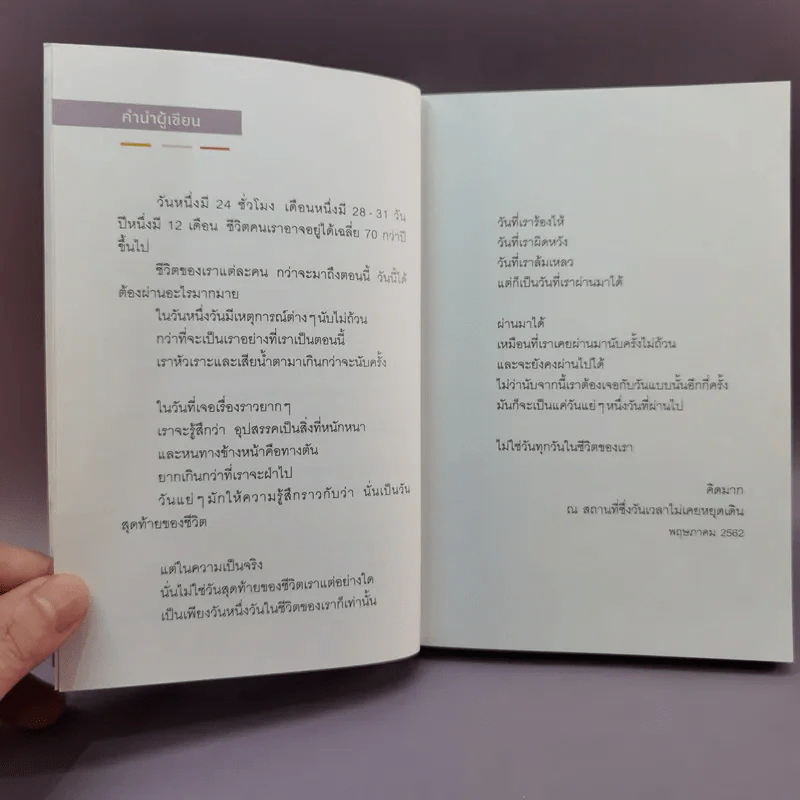 คำนำผู้เขียน
วันหนึ่งมี 24 ชั่วโมง เดือนหนึ่งมี 28 - 31 วัน
ปีหนึ่งมี 12 เดือน ชีวิตคนเราอาจอยู่ได้เฉลี่ย 70 กว่าปี
ขึ้นไป
ชีวิตของเราแต่ละคน กว่าจะมาถึงตอนนี้ วันนี้ได้
ต้องผ่านอะไรมากมาย
ในวันหนึ่งวันมีเหตุการณ์ต่างๆนับไม่ถ้วน
กว่าที่จะเป็นเราอย่างที่เราเป็นตอนนี้
เราหัวเราะและเสียน้ำตามาเกินกว่าจะนับครั้ง
ในวันที่เจอเรื่องราวยากๆ
เราจะรู้สึกว่า อุปสรรคเป็นสิ่งที่หนักหนา
และหนทางข้างหน้าคือทางตัน
ยากเกินกว่าที่เราจะฝ่าไป
วันแย่ๆมักให้ความรู้สึกราวกับว่า นั่นเป็นวัน
สุดท้ายของชีวิต
แต่ในความเป็นจริง
นั่นไม่ใช่วันสุดท้ายของชีวิตเราแต่อย่างใด
เป็นเพียงวันหนึ่งวันในชีวิตของเราก็เท่านั้น
วันที่เราร้องไห้
วันที่เราผิดหวัง
วันที่เราล้มเหลว
แต่ก็เป็นวันที่เราผ่านมาได้
ผ่านมาได้
เหมือนที่เราเคยผ่านมานับครั้งไม่ถ้วน
และจะยังคงผ่านไปได้
ไม่ว่านับจากนี้เราต้องเจอกับวันแบบนั้นอีกกี่ครั้ง
มันก็จะเป็นแค่วันแย่ๆหนึ่งวันที่ผ่านไป
ไม่ใช่วันทุกวันในชีวิตของเรา
คิดมาก
ณ สถานที่ซึ่งวันเวลาไม่เคยหยุดเดิน
พฤษภาคม 2562